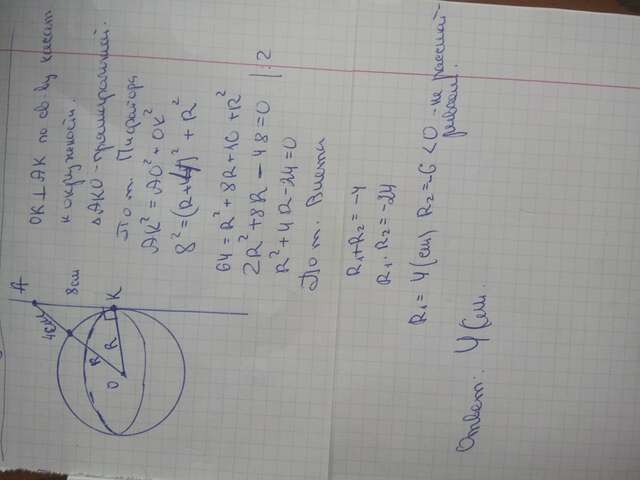 A
4см
8см
R
O
R
K
OK⊥AK по св-ву касат.
к окружности.
△AKO - прямоугольный.
По т. Пифагора
AK² = AO² + OK²
8² = (R+4)² + R²
64 = R² + 8R + 16 + R²
2R² + 8R - 48 = 0 | :2
R² + 4R - 24 = 0
По т. Виета
R₁+R₂ = -4
R₁·R₂ = -24
R₁ = 4(см) R₂ = -6 < 0 - не рассмат-
риваем.
Ответ: 4(см.